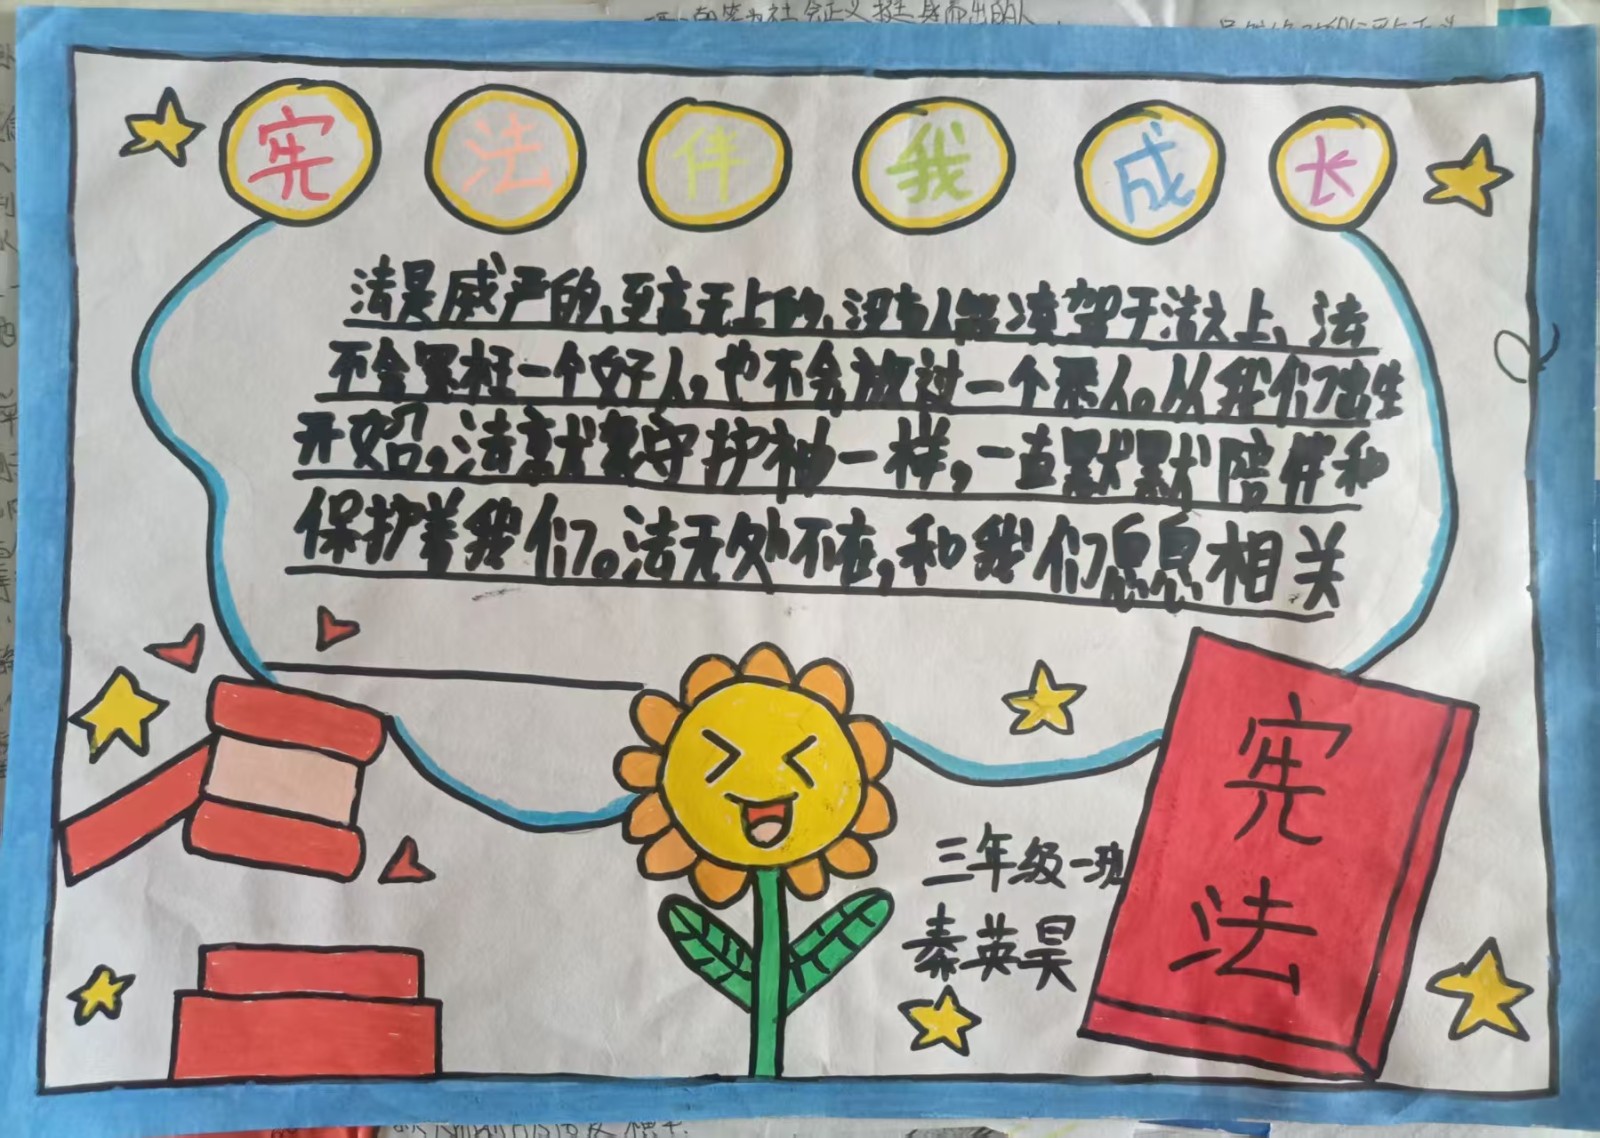 宪法伴我成长
法是威严的、至高无上的、没有人能凌驾于法之上、法
不会冤枉一个好人,也不会放过一个恶人。从我们出生
开始,法就象守护神一样,一直默默陪伴和
保护着我们。法无处不在,和我们息息相关
三年级一班
秦英昊
宪
法